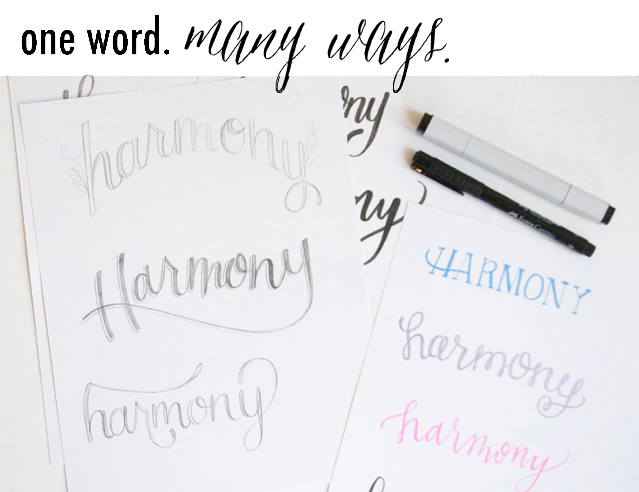 one word. many ways.
harmony
Harmony
harmony
ny
ny
HARMONY
harmony
harmony